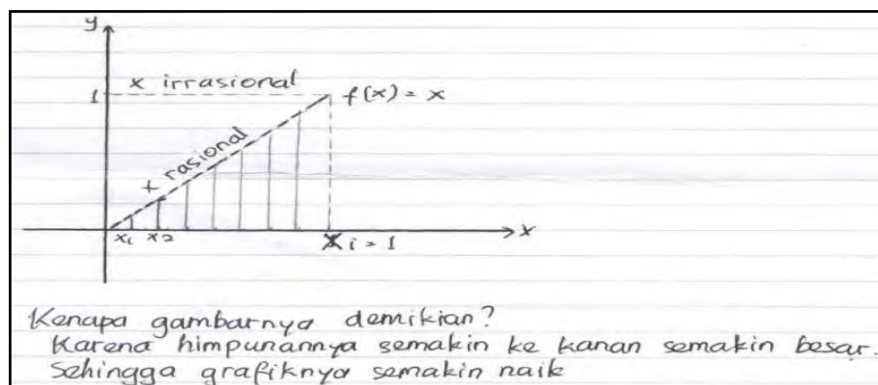 y
x irrasional
1
f(x) = x
x rasional
x1 x2 xi = 1 x
Kenapa gambarnya demikian?
Karena himpunannya semakin ke kanan semakin besar.
Sehingga grafiknya semakin naik